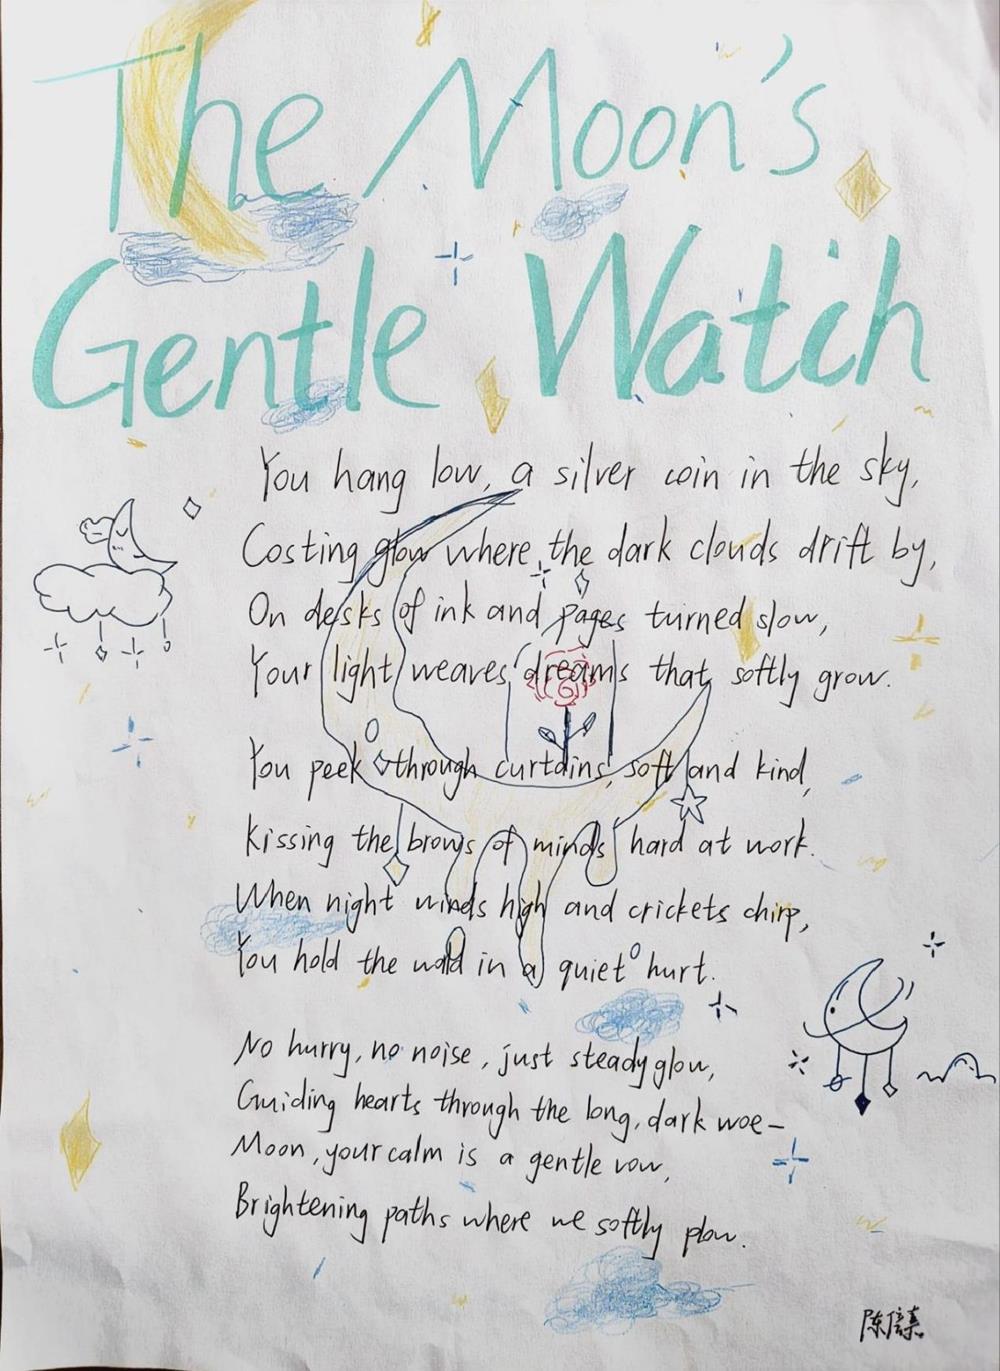 The Moon's
Gentle Watch
You hang low, a silver coin in the sky,
Costing glow where the dark clouds drift by,
On desks of ink and pages turned slow,
Your light weaves dreams that softly grow.
You peek through curtains, soft and kind,
Kissing the brows of minds hard at work.
When night winds high and crickets chirp,
You hold the in a quiet hurt.
No hurry, no noise, just steady glow,
Guiding hearts through the long, dark woe—
Moon, your calm is a gentle vow,
Brightening paths where we softly plow.
陈信嘉